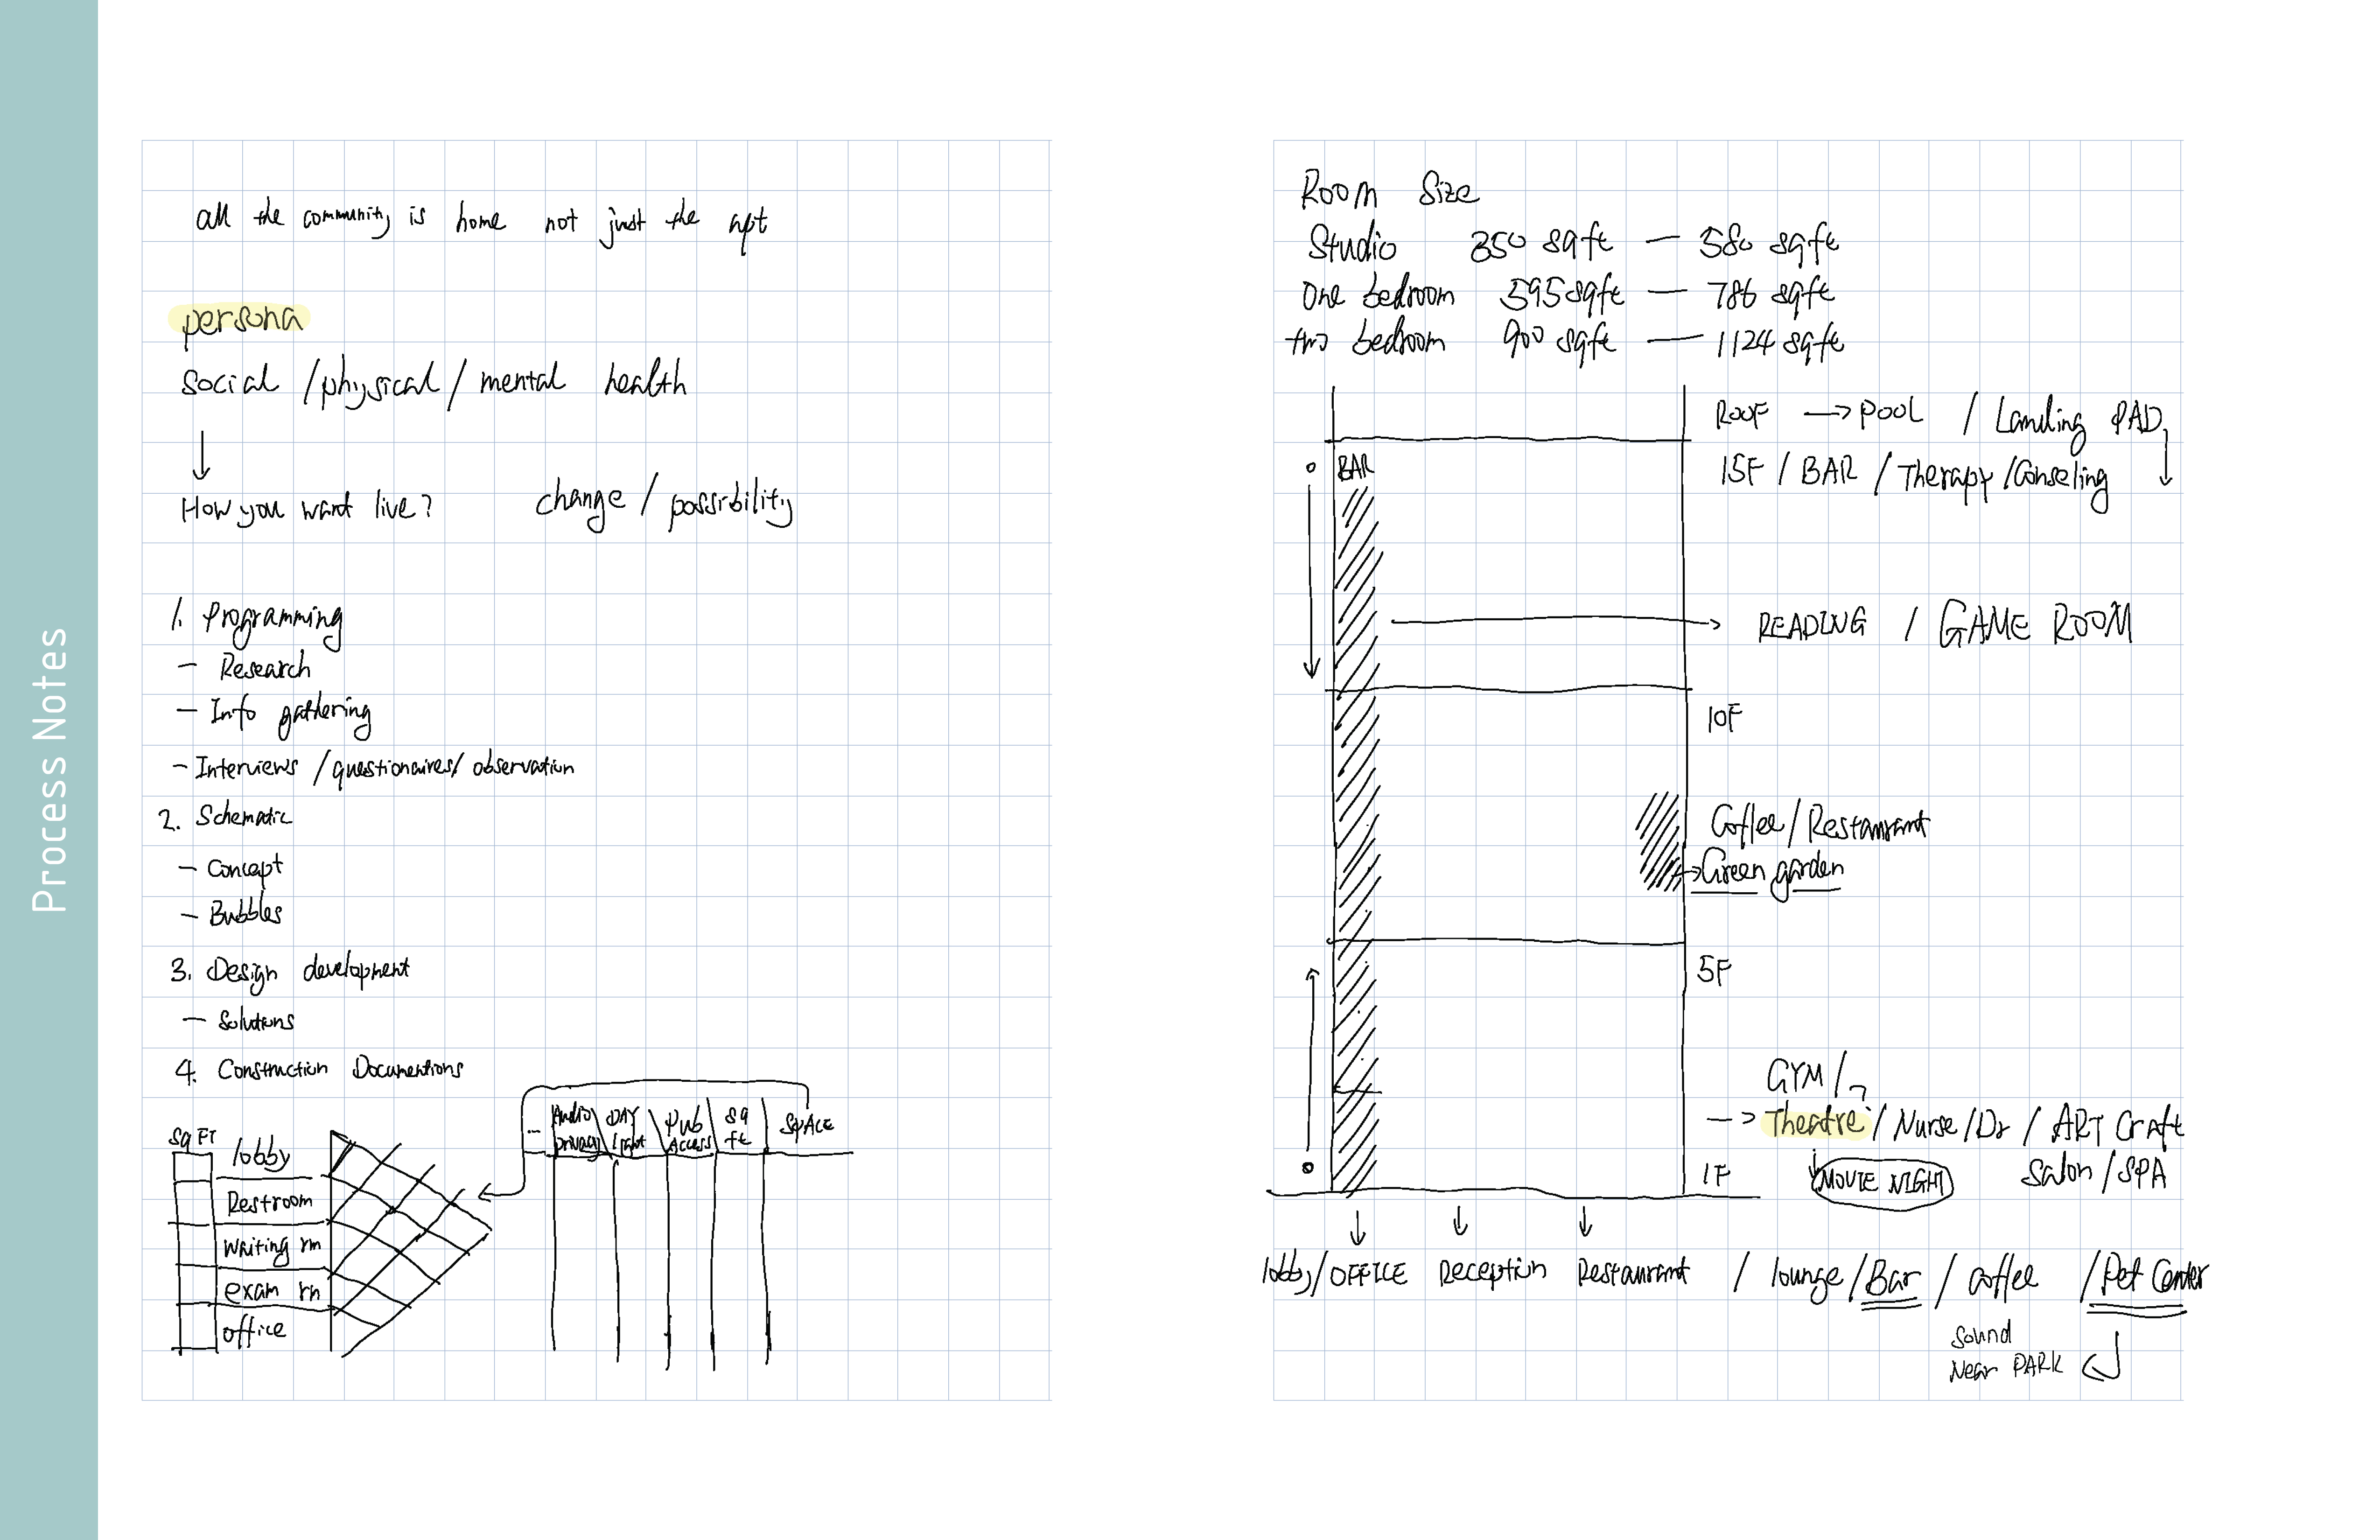 Process Notes
all the community is home not just the apt
persona
social / physical / mental health
How you want live? change / possibility
1. Programming
- Research
- Info gathering
- Interviews / questionaires / observation
2. Schematic
- Concept
- Bubbles
3. Design development
- Solutions
4. Construction Documentions
Sq FT
lobby
Restroom
Waiting rm
exam rm
office
... Audio privacy DAY light Pub Access sq ft SPACE
Room Size
Studio 350 sqft - 580 sqft
One bedroom 595 sqft - 786 sqft
two bedroom 900 sqft - 1124 sqft
ROOF → POOL / Landing PAD
BAR
15F / BAR / Therapy / Conseling
READING / GAME ROOM
10F
Coffee / Restaurant
→ Green garden
5F
GYM /
→ Theatre / Nurse / Dr / ART Craft
1F
MOVIE NIGHT
Salon / SPA
lobby / OFFICE Reception Restaurant / lounge / Bar / coffee / Pet Center
Sound
Near PARK